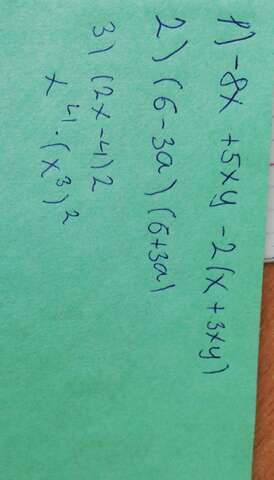 1) -8x + 5xy - 2(x + 3xy)
2) (6 - 3a) (6 + 3a)
3) (2x - 4)2
x⁴ · (x³)²